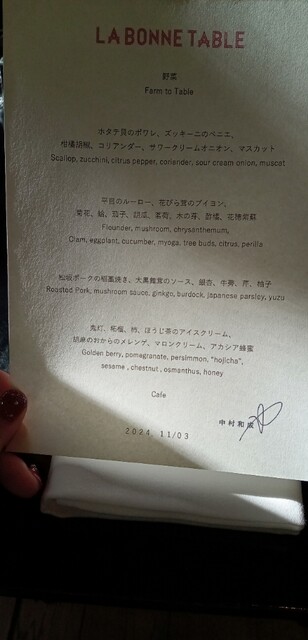 LA BONNE TABLE
野菜
Farm to Table
ホタテ貝のポワレ、ズッキーニのベニエ、
柑橘胡椒、コリアンダー、サワークリームオニオン、マスカット
Scallop, zucchini, citrus pepper, coriander, sour cream onion, muscat
平目のルーロー、花びら茸のブイヨン、
菊花、蛤、茄子、胡瓜、茗荷、木の芽、酢橘、花穂紫蘇
Flounder, mushroom, chrysanthemum,
Clam, eggplant, cucumber, myoga, tree buds, citrus, perilla
松坂ポークの稲藁焼き、大黒舞茸のソース、銀杏、牛蒡、芹、柚子
Roasted Pork, mushroom sauce, ginkgo, burdock, japanese parsley, yuzu
鬼灯、柘榴、柿、ほうじ茶のアイスクリーム、
胡麻のおからのメレンゲ、マロンクリーム、アカシア蜂蜜
Golden berry, pomegranate, persimmon, "hojicha",
sesame , chestnut , osmanthus, honey
Cafe
中村和成
2024 11/03